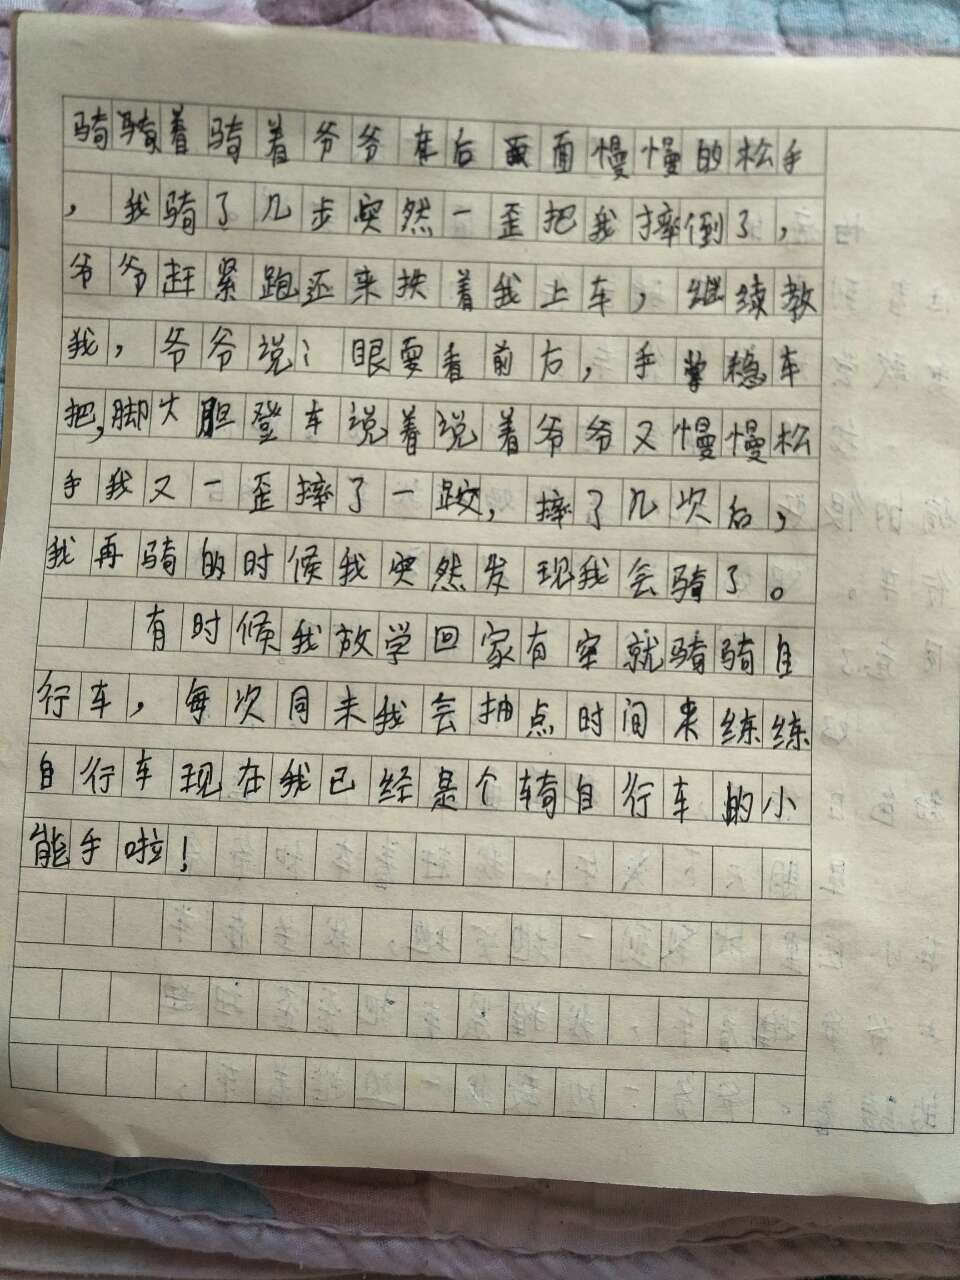 骑骑着骑着爷爷在后面面慢慢的松手
，我骑了几步突然一歪把我摔倒了，
爷爷赶紧跑还来扶着我上车，继续教
我，爷爷说：眼要看前方，手掌稳车
把，脚大胆登车说着说着爷爷又慢慢松
手我又一歪摔了一跤，摔了几次后，
我再骑的时候我突然发现我会骑了。
有时候我放学回家有空就骑骑自
行车，每次周末我会抽点时间来练练
自行车现在我已经是个骑自行车的小
能手啦！